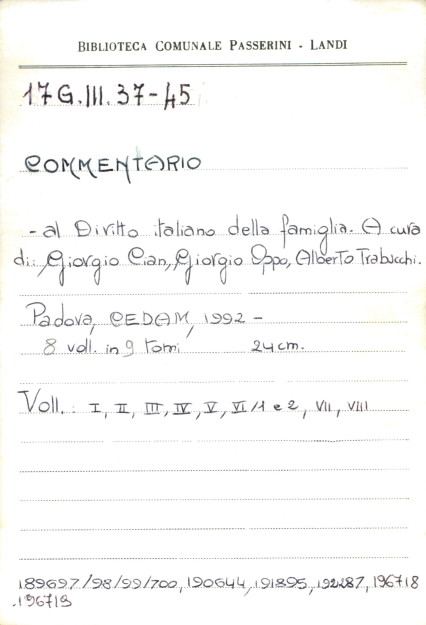 BIBLIOTECA COMUNALE PASSERINI - LANDI
17G.III.37-45
COMMENTARIO
- al Diritto italiano della famiglia. A cura
di: Giorgio Cian, Giorgio Oppo, Alberto Trabucchi.
Padova, CEDAM, 1992 -
8 voll. in 9 tomi 24 cm.
Voll.: I, II, III, IV, V, VI/1 e 2, VII, VIII
189697/98/99/700, 190644, 191895, 192287, 196718
.196719